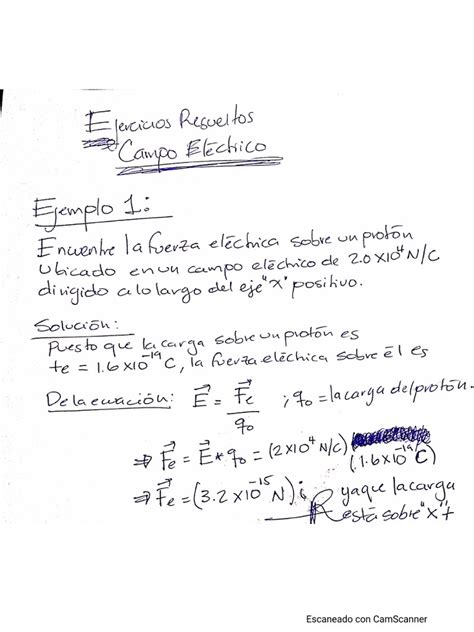 Ejercicios Resueltos
Campo Eléctrico
Ejemplo 1:
Encuentre la fuerza eléctrica sobre un protón
ubicado en un campo eléctrico de 2.0x10⁴ N/C
dirigido a lo largo del eje "x" positivo.
Solución:
Puesto que la carga sobre un protón es
te = 1.6x10⁻¹⁹ C, la fuerza eléctrica sobre él es
De la ecuación: E⃗ = F⃗e / q₀ ; q₀ = la carga del protón.
⇒ F⃗e = E⃗ * q₀ = (2x10⁴ N/C) (1.6x10⁻¹⁹ C)
⇒ F⃗e = (3.2x10⁻¹⁵ N) i ya que la carga
R está sobre "x" +
Escaneado con CamScanner